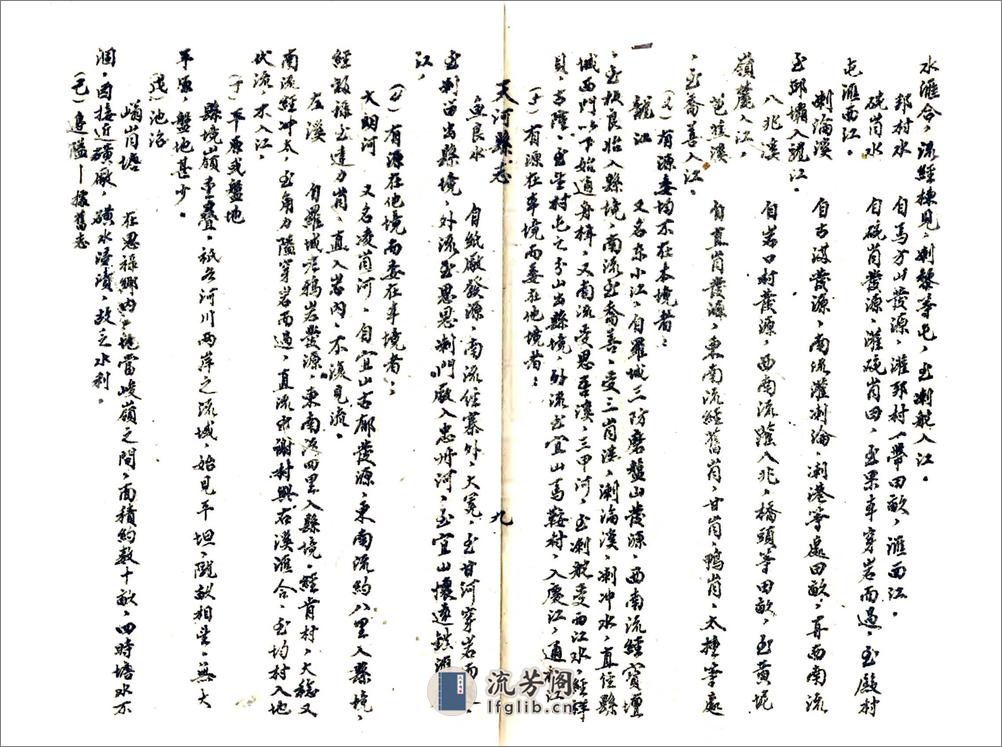 水滙合，流經棟見，剌黎等屯，至剌靛入江。
邦村水　自馬方山發源，灌邦村一帶田畝，滙西江。
硴肖水　自硴肖發源，灌硴肖田，至果車穿岩而過，至殿村
屯滙西江。
剌淪溪　自古満發源，南流灌剌淪，剌港等處田畝，再西南流
至邱壩入龍江。
八兆溪　自岩口村發源，西南流灌入兆，橋頭等田畝，至黄坭
嶺麓入江。
芭蕉溪　自直肖發源，東南流經舊肖，甘肖，鴨肖，太
，至喬善入江。
有源委均不在本境者：
龍江　又名東小江，自羅城三防磨盤山發源，西南流經寶壇
，至板良始入縣境，南流至喬善，受三肖溪，剌淪溪，剌冲水，直經縣
城西門以下始通舟楫，又南流受思吾溪，三甲河，至剌靛受西江水，經祥
貝古隆，至坐村屯之分山出縣境，外流至宜山馬鞍村，入慶江，通柳江，
有源在本境而委在他境者：
天河縣志　九
魚良水　自紙廠發源，南流經寨外，大冕，至甘河穿岩而
至剌苗出縣境，外流至思恩剌門廠入忠州河，至宜山懷遠鎮滙
江，
有源在他境而委在本境者：
大朗河　又名凌肖河，自宜山古郁發源，東南流約八里入縣境，
經敦祿至達力肖，直入岩內，不復見流。
左溪　自羅城老鴉岩發源，東南流四里入縣境，經肯村，大穏又
南流經冲頭，至角力隘穿岩而過，直流中謝村與右溪滙合，至均村入地
伏流，不入江，
（丁）平原或盤地
縣境嶺重叠，祇各河川兩岸之流域，始見平坦，隴畝相望，無大
平原，盤地甚少。
（戊）池沼
嶹肖塘　在思祿鄉內，地當峻嶺之間，面積約数十畝，四時塘水不
涸，因接近礦厰，礦水浸漬，故乏水利。
（己）邊隘｜據舊志
流芳阁
lfglib.cn